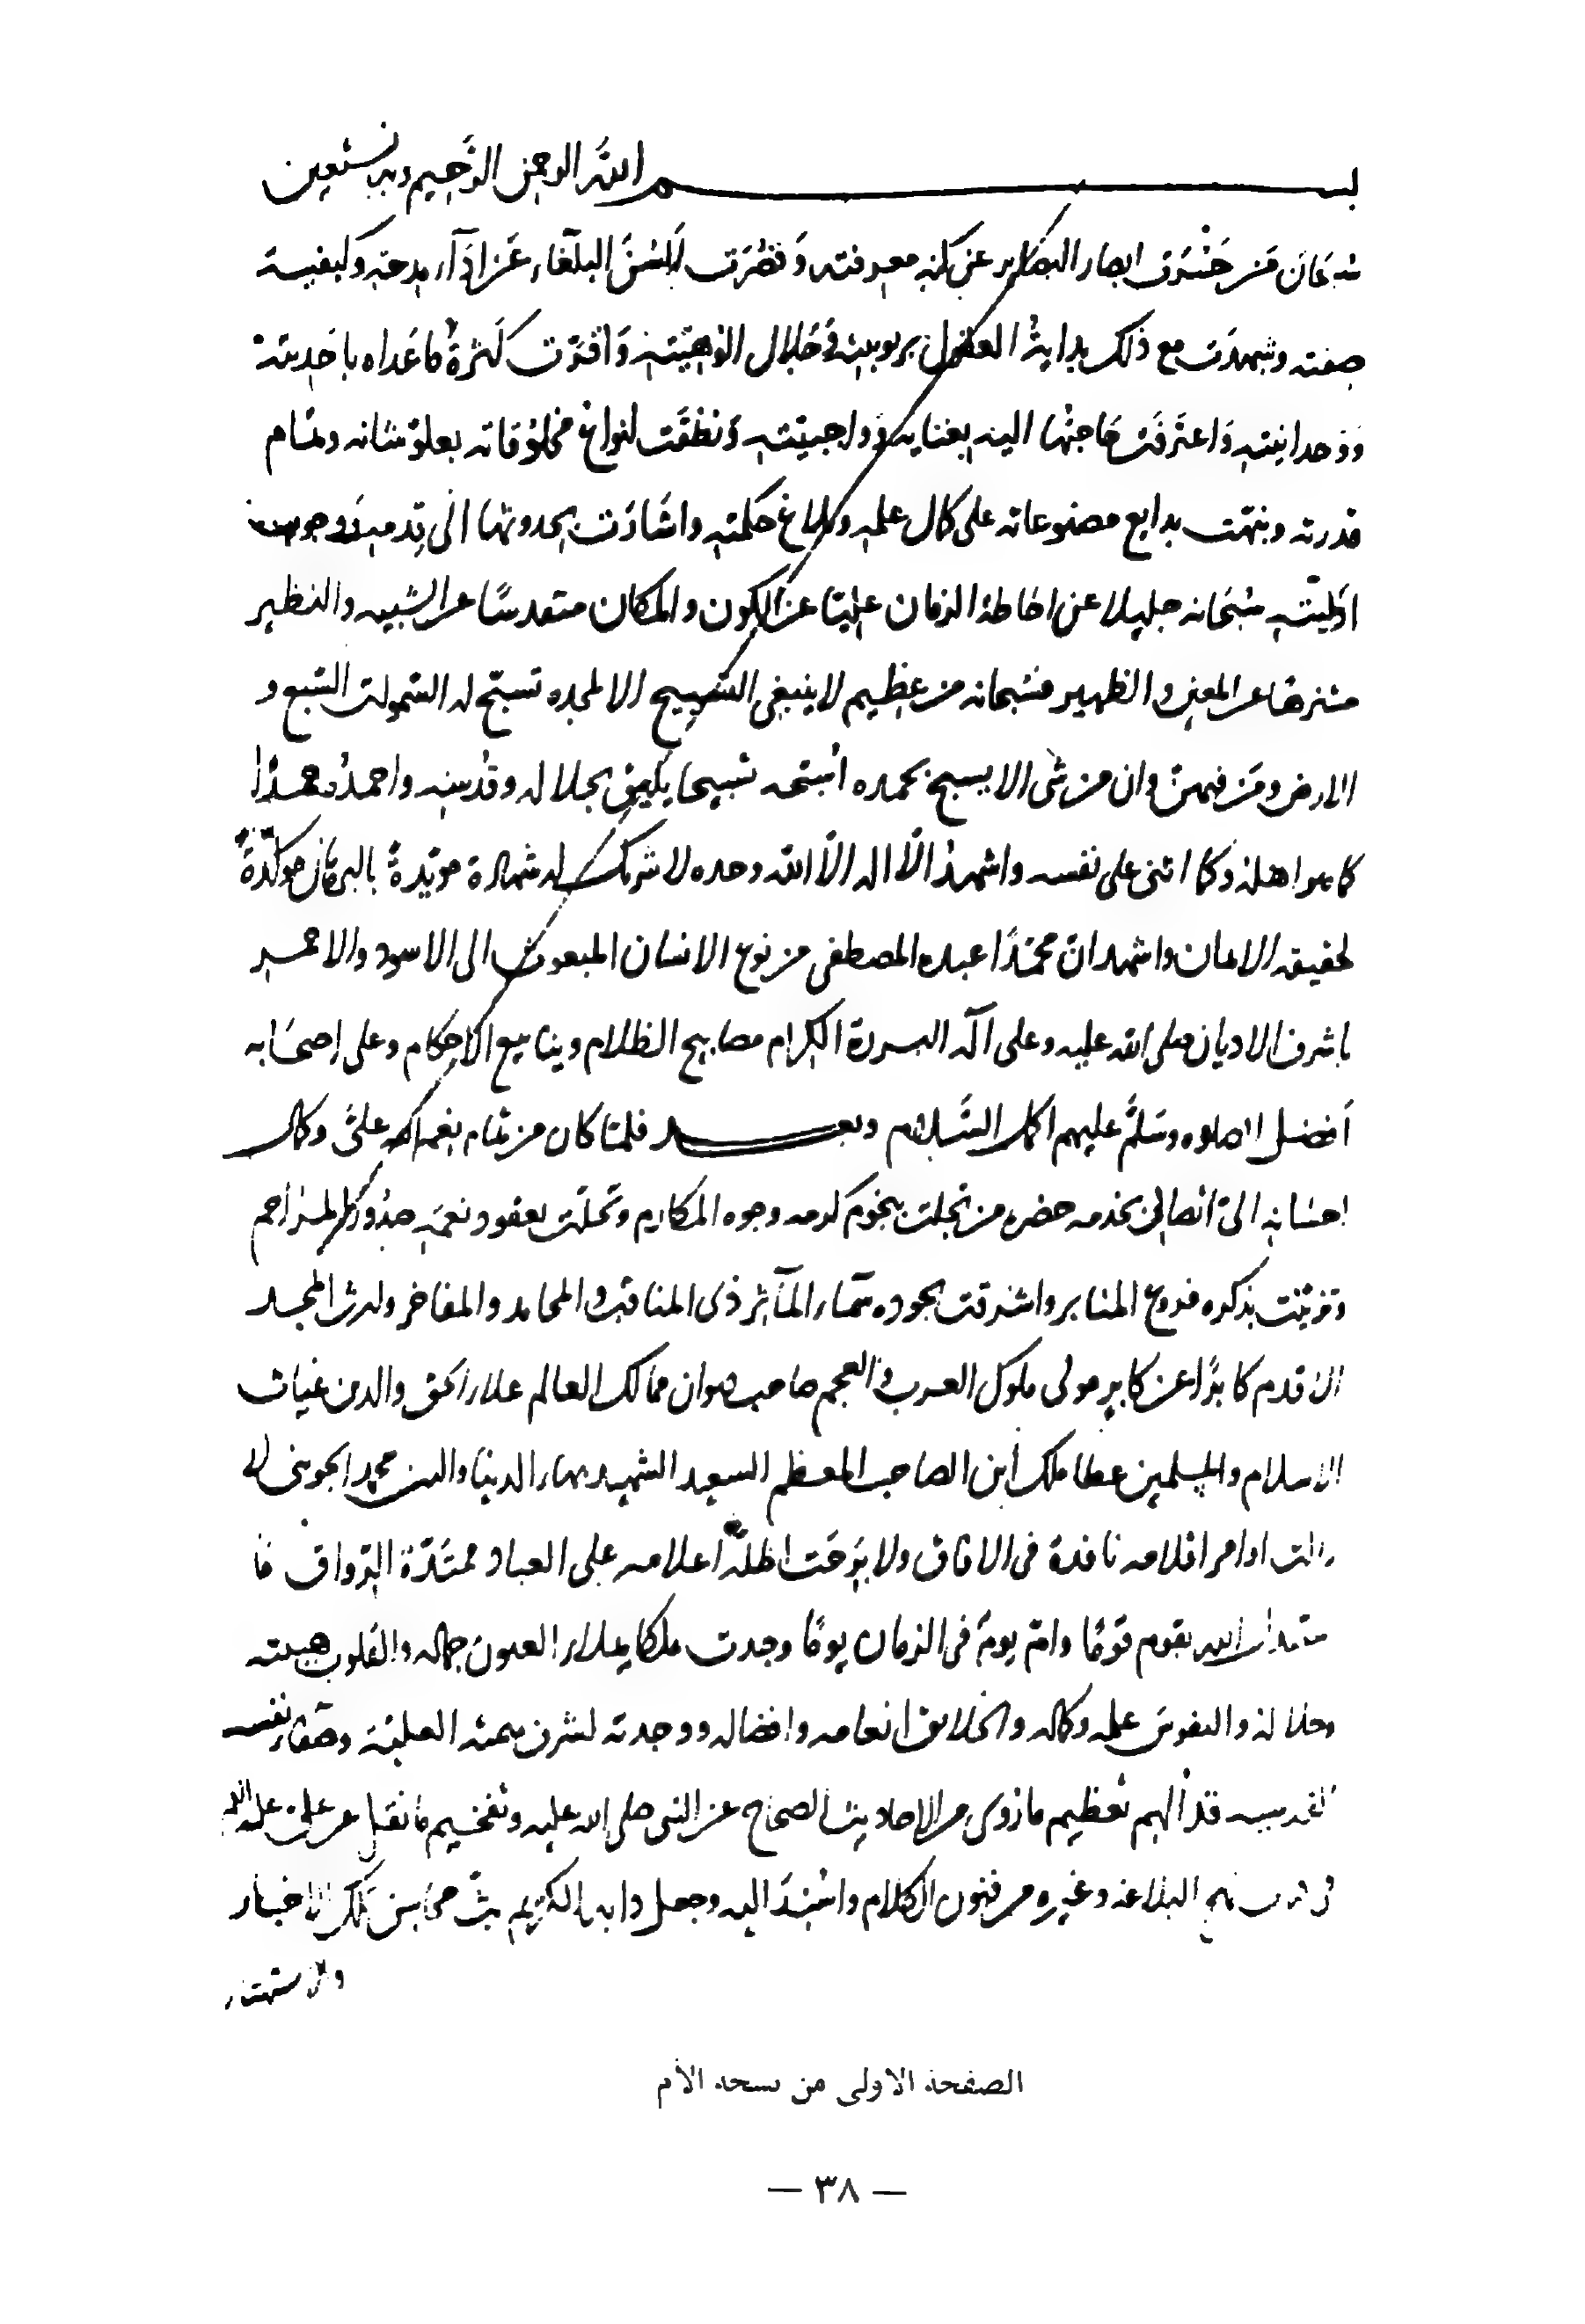 بسم الله الرحمن الرحيم وبه نستعين
سبحان من حسرت ابصار البصاير عن كنه معرفته وقصرت السن البلغاء عن اداء مدحته وكيفية
صفته وشهدت مع ذلك بداية العقول بربوبيته في جلال الوهيته واقرت كثرة ما عداه باحديته
ووحدانيته واعترفت حاجتها اليه بغنايه وواجبيته ونطقت انواع مخلوقاته بعلو شانه وتمام
قدرته ونبهت بدايع مصنوعاته على كمال علمه وبلاغ حكمته واشارت بحدوثها الى قدمه ووجوب
ازليته سبحانه جليلا عن احاطة الزمان عليا عن الكون والمكان متقدسا عن الشبيه والنظير
متنزها عن المعين والظهير فسبحانه من عظيم لا ينبغي التسبيح الا لمجده تسبح له السموات السبع و
الارض ومن فيهن وان من شى الا يسبح بحمده اسبحه تسبيحا يليق بجلاله وقدسه واحمده حمدا
كما هو اهله وكما اثنى على نفسه واشهد الا اله الا الله وحده لا شريك له شهادة مويدة بالبرهان موكدة
لحقيقة الايمان واشهد ان محمدا عبده المصطفى من نوع الانسان المبعوث الى الاسود والاحمر
باشرف الاديان صلى الله عليه وعلى آله البررة الكرام مصابيح الظلام وينابيع الاحكام وعلى اصحابه
افضل الصلوه وسلم عليهم اكمل السلام وبعد فلما كان من تمام نعم الله علي وكمال
احسانه الى اتصالى بخدمه حضرة من تجلت بنجوم كرمه وجوه المكارم وتحلت بعقود نعمه صدور المراحم
وتزينت بذكره فروع المنابر واشرقت بجوده سماء المآثر ذى المناقب والمحامد والمفاخر وارث المجد
الاقدم كابرا عن كابر مولى ملوك العرب والعجم صاحب ديوان ممالك العالم علاء الحق والدين غياث
الاسلام والمسلمين عطا ملك ابن الصاحب المعظم السعيد الشهيد بهاء الدنيا والدين محمد الجويني لا
زالت اوامر اقلامه نافذة فى الافاق ولا برحت اظلة اعلامه على العباد ممتدة الرواق ما
يقوم قوما وام يوم فى الزمان يوما وجدت ملكا يملاء العيون جماله والقلوب هيبته
وجلاله والنفوس علمه وكماله والخلايق انعامه وافضاله ووجدته لشرف همته العلية وصفاء نفسه
القدسيه قد الهم تعظيم ما روى من الاحاديث الصحاح عن النبى صلى الله عليه وتفخيم ما نقل عن على عليه السلام
فى نهج البلاغه وغيره من فنون الكلام واسند اليه وجعل دابه الكريم بث محاسن تلك الاخبار
والاشتهار
الصفحة الاولى من نسخة الأم
— ٣٨ —